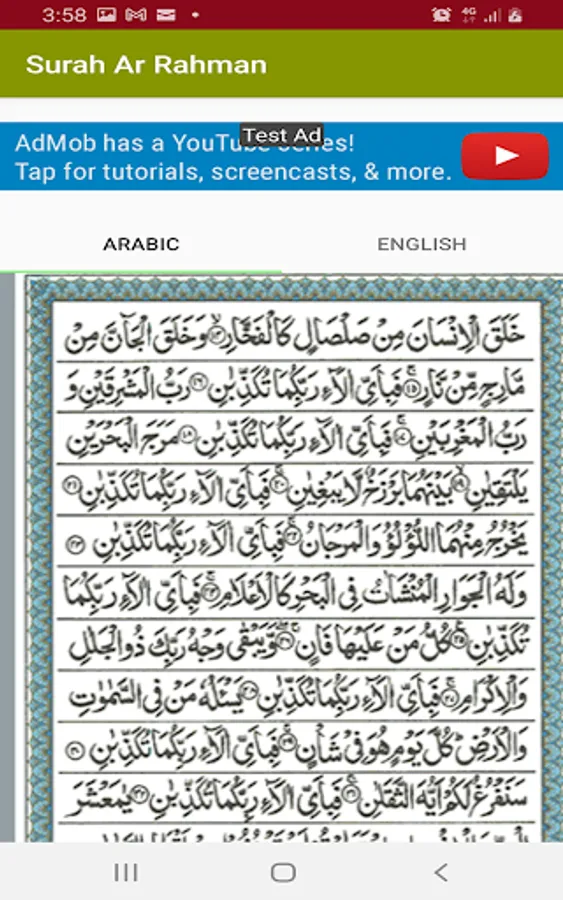 3:58
4G
Surah Ar Rahman
Test Ad
AdMob has a YouTube series!
Tap for tutorials, screencasts, & more.
ARABIC ENGLISH
خَلَقَ الْاِنْسَانَ مِنْ صَلْصَالٍ كَالْفَخَّارِ ۙ﴿۱۴﴾ وَخَلَقَ الْجَآنَّ مِنْ
مَّارِجٍ مِّنْ نَّارٍ ۚ﴿۱۵﴾ فَبِاَيِّ اٰلَآءِ رَبِّكُمَا تُكَذِّبٰنِ ﴿۱۶﴾ رَبُّ الْمَشْرِقَيْنِ وَ
رَبُّ الْمَغْرِبَيْنِ ۚ﴿۱۷﴾ فَبِاَيِّ اٰلَآءِ رَبِّكُمَا تُكَذِّبٰنِ ﴿۱۸﴾ مَرَجَ الْبَحْرَيْنِ
يَلْتَقِيٰنِ ۙ﴿۱۹﴾ بَيْنَهُمَا بَرْزَخٌ لَّا يَبْغِيٰنِ ۚ﴿۲۰﴾ فَبِاَيِّ اٰلَآءِ رَبِّكُمَا تُكَذِّبٰنِ ﴿۲۱﴾
يَخْرُجُ مِنْهُمَا اللُّؤْلُؤُ وَالْمَرْجَانُ ۚ﴿۲۲﴾ فَبِاَيِّ اٰلَآءِ رَبِّكُمَا تُكَذِّبٰنِ ﴿۲۳﴾
وَلَهُ الْجَوَارِ الْمُنْشَاٰتُ فِى الْبَحْرِ كَالْاَعْلَامِ ۚ﴿۲۴﴾ فَبِاَيِّ اٰلَآءِ رَبِّكُمَا
تُكَذِّبٰنِ ﴿۲۵﴾ كُلُّ مَنْ عَلَيْهَا فَانٍ ۚ﴿۲۶﴾ وَّيَبْقٰى وَجْهُ رَبِّكَ ذُو الْجَلٰلِ
وَالْاِكْرَامِ ۚ﴿۲۷﴾ فَبِاَيِّ اٰلَآءِ رَبِّكُمَا تُكَذِّبٰنِ ﴿۲۸﴾ يَسْـَٔلُهٗ مَنْ فِى السَّمٰوٰتِ
وَالْاَرْضِ ؕ كُلَّ يَوْمٍ هُوَ فِيْ شَاْنٍ ۚ﴿۲۹﴾ فَبِاَيِّ اٰلَآءِ رَبِّكُمَا تُكَذِّبٰنِ ﴿۳۰﴾
سَنَفْرُغُ لَكُمْ اَيُّهَ الثَّقَلٰنِ ۚ﴿۳۱﴾ فَبِاَيِّ اٰلَآءِ رَبِّكُمَا تُكَذِّبٰنِ ﴿۳۲﴾ يٰمَعْشَرَ